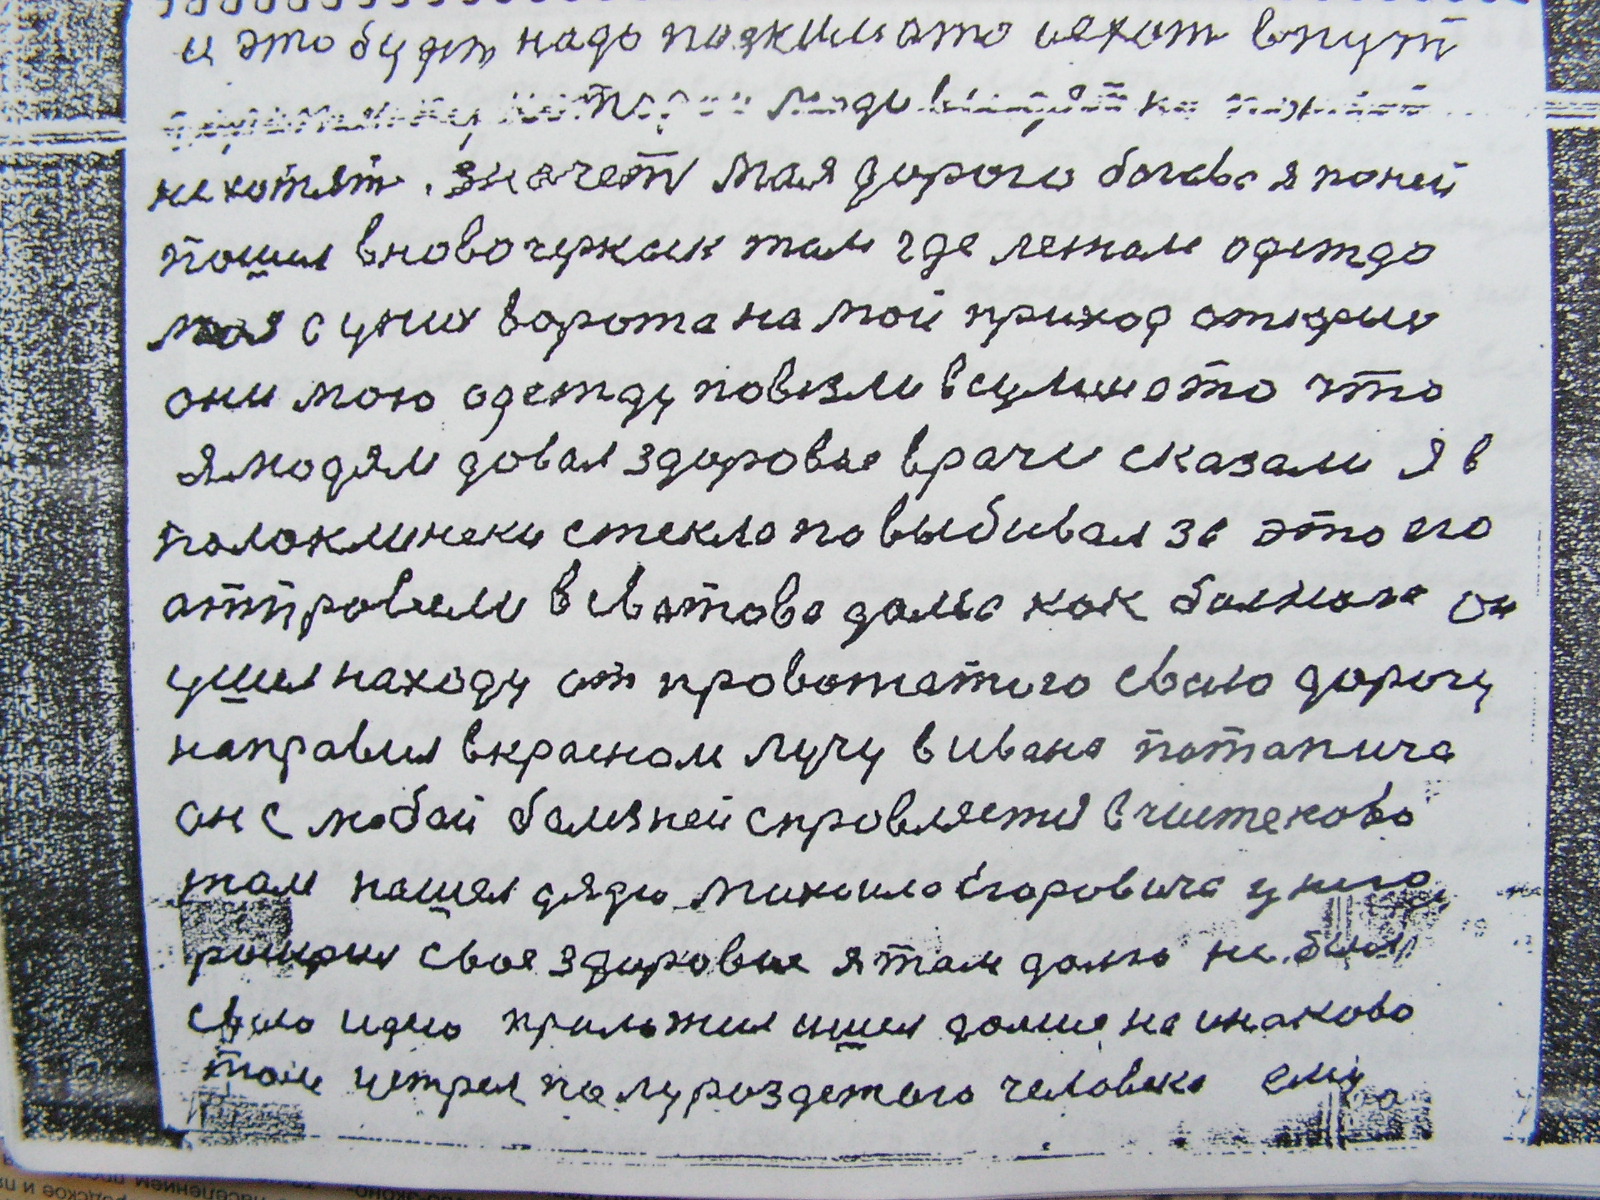 и это будет надо подкимато ихот впути
люди на
нехотят. значет мая дорога богава я поней
пошил вновочеркаск там где лежале одежда
моя с уних ворота на мой приход открыи
они мою одежду повезли всумы ето что
я людям довал здоровье врачи сказали я в
полоклинеки стекла повыбивал зе это его
аттровили в сватова дома как болнога он
ушил находу от провожетого сваю дорогу
направил вкрасном лучу в ивана потапича
он с любой болизней справляется в чистеково
там нашел дядю михаила Егоровича у него
роширил свое здоровье я там долго не был
сваю идею приложил ишил долше не инаково
там истрел полуроздетого человека ему